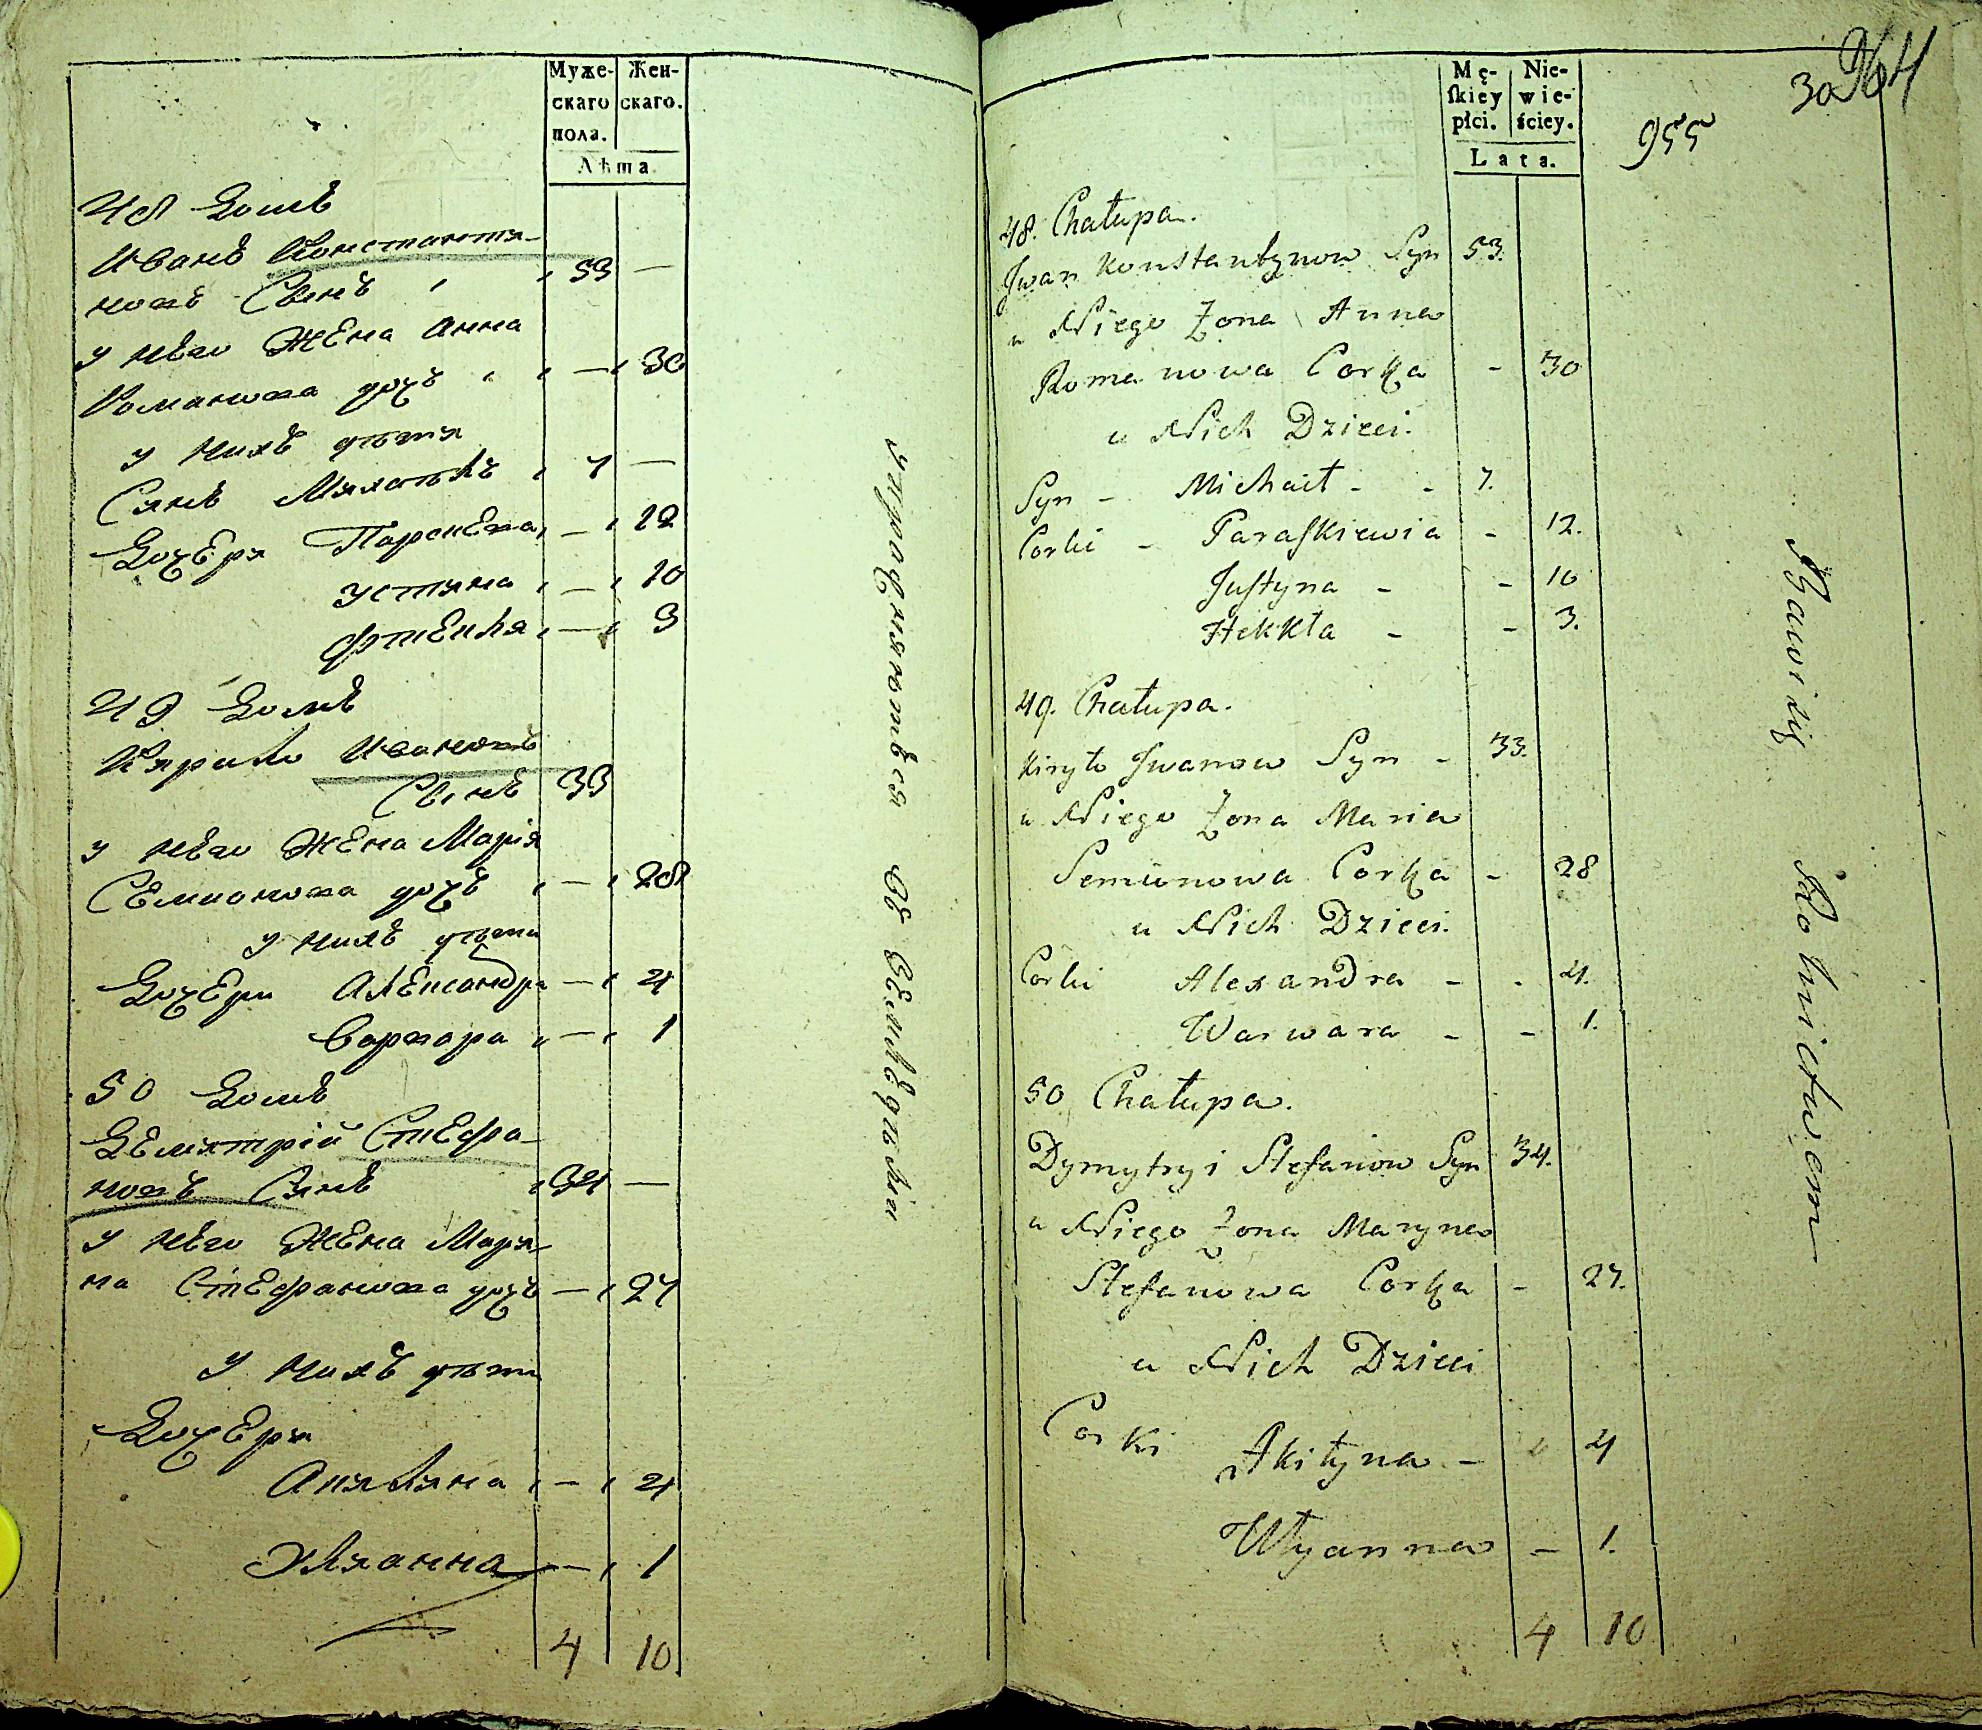 Муже-
скаго
пола.
Жен-
скаго.
Лѣта.
48 Домъ
Иванъ Константи-
новъ Сынъ 53 —
у него Жена Анна
Романова дочь — 30
у нихъ дѣти
Сынъ Михайлъ 7 —
Дочери Парскева — 12
Устина — 10
Фтекля — 3
49 Домъ
Кирило Ивановъ
Сынъ 33
у него Жена Марія
Семионова дочь — 28
у нихъ дѣти
Дочери Александра — 4
Варвара — 1
50 Домъ
Демитрій Стефа-
новъ Сынъ 34 —
у него Жена Мари-
на Стефанова дочь — 27
у нихъ дѣти
Дочери
Акилина — 4
Улианна — 1
4 10
упраждняютъся въ земледѣліи
Mę-
skiey
płci.
Nie-
wie-
ściey.
Lata.
955
48. Chałupa.
Jwan Konstantynow Syn 53.
u Niego Żona Anna
Romanowa Corka - 30
u Nich Dzieci.
Syn - Michait - - 7.
Corki - Paraskiewia - 12.
Justyna - - 10
Hekkta - - 3.
49. Chałupa.
Kiryło Jwanow Syn - 33.
u Niego Żona Maria
Semionowa Corka - 28
u Nich Dzieci.
Corki Alexandra - - 4.
Warwara - - 1.
50 Chałupa.
Dymytryi Stefanow Syn 34.
u Niego Żona Maryna
Stefanowa Corka - 27.
u Nich Dzieci
Corki
Akiłyna - 4
Ułyanna - 1.
4 10
Bawi się Rolnictwem